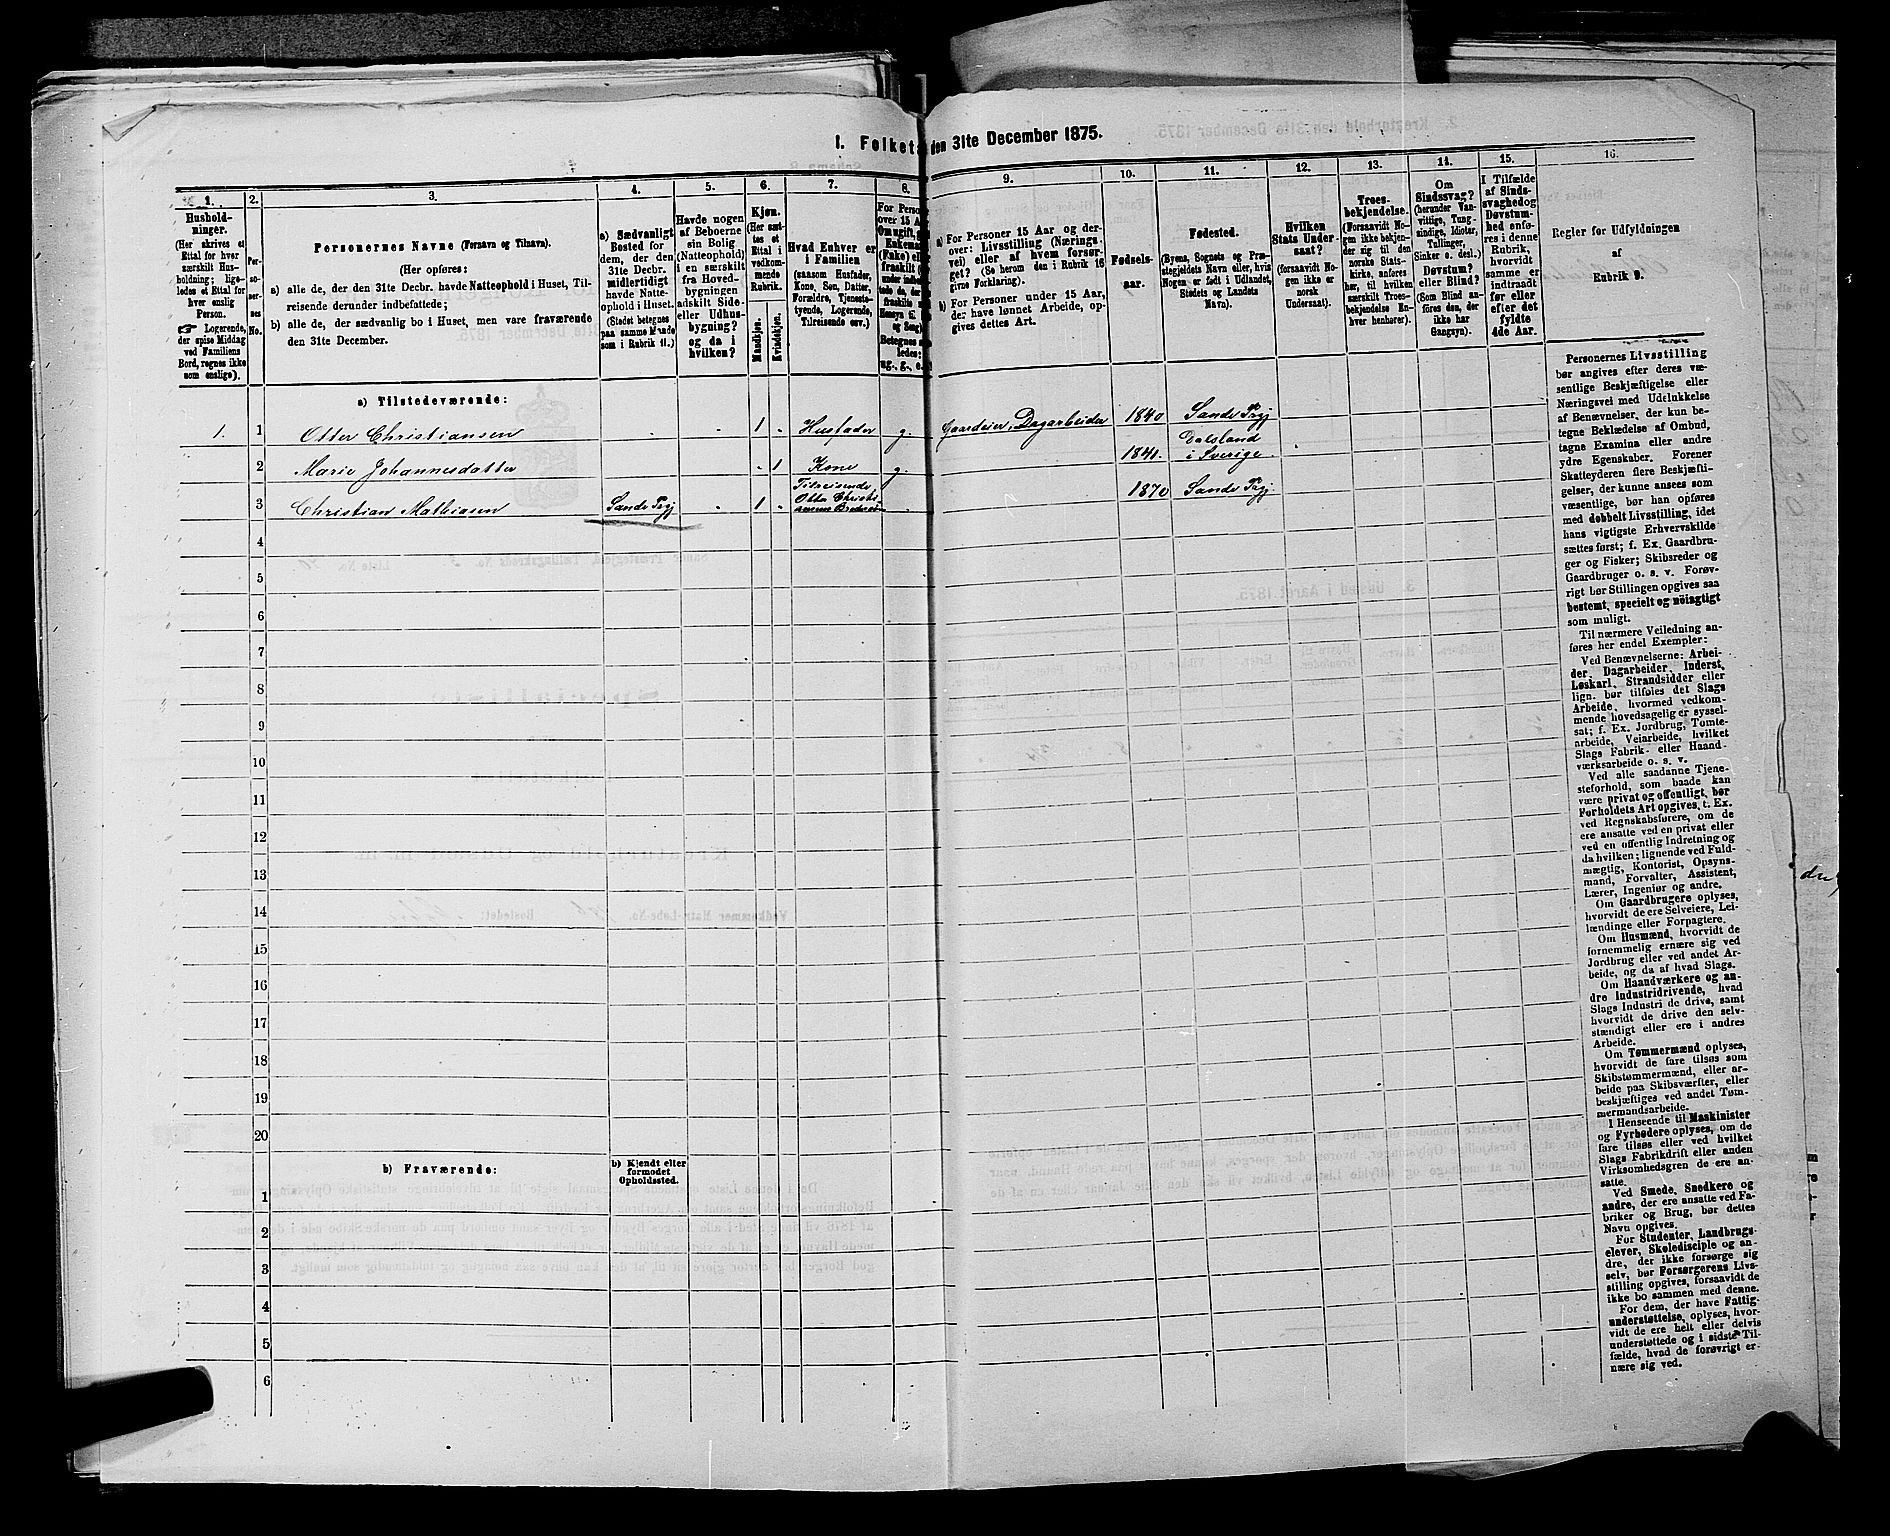 1. Folketæ den 31te December 1875.
1. 2. 3. 4. 5. 6. 7. 8. 9. 10. 11. 12. 13. 14. 15. 16.
Hushold-
ninger.
(Her skrives et
Ettal for hver
særskilt Hus-
holdning; lige-
ledes et Ettal for
hver enslig
Person.
☞ Logerende,
der spise Middag
ved Familiens
Bord, regnes ikke
som enslige).
Per-
so-
ner-
nes
No.
Personernes Navne (Fornavn og Tilnavn).
(Her opføres:
a) alle de, der den 31te Decbr. havde Natteophold i Huset, Til-
reisende derunder indbefattede;
b) alle de, der sædvanlig bo i Huset, men vare fraværende
den 31te December.
a) Sædvanligt
Bosted for
dem, der den
31te Decbr.
midlertidigt
havde Natte-
ophold i Huset.
(Stedet betegnes
paa samme Maade
som i Rubrik 11.)
Havde nogen
af Beboerne
sin Bolig
(Natteophold)
i en særskilt
fra Hoved-
bygningen
adskilt Side-
eller Udhus-
bygning?
og da i
hvilken?
Kjøn.
(Her sæt-
tes et
Ettal i
vedkom-
mende
Rubrik.
Mandkjøn.
Kvindekjøn.
Hvad Enhver er
i Familien
(saasom Husfader,
Kone, Søn, Datter,
Forældre, Tjeneste-
tyende, Logerende,
Tilreisende osv.)
For Perso
over 15 A
Om ugift, g
Enkema
(Enke) el
fraskilt
Betegnes
ledes:
ug., g., e.
a) For Personer 15 Aar og der-
over: Livsstilling (Nærings-
vei) eller af hvem forsør-
get? (Se herom den i Rubrik 16
givne Forklaring).
b) For Personer under 15 Aar,
der have lønnet Arbeide, op-
gives dettes Art.
Fødsels-
aar.
Fødested.
(Byens, Sognets og Præ-
stegjeldets Navn eller, hvis
Nogen er født i Udlandet,
Stedets og Landets
Navn).
Hvilken
Stats Under-
saat?
(forsaavidt No-
gen ikke er
norsk
Undersaat).
Troes-
bekjendelse.
(Forsaavidt No-
gen ikke bekjen-
der sig til den
norske Stats-
kirke, anføres
her, til hvilken
særskilt Troes-
bekjendelse En-
hver henhører).
Om
Sindssvag?
(herunder Van-
vittige, Tung-
sindige, Idioter,
Tullinger,
Sinker o. desl.)
Døvstum?
eller Blind?
(Som Blind an-
føres den, der
ikke har
Gangsyn).
I Tilfælde
af Sinds-
svaghed og
Døvstum-
hed anfø-
res i denne
Rubrik,
hvorvidt
samme er
indtraadt
før eller
efter det
fyldte
4de Aar.
Regler for Udfyldningen
af
Rubrik 9.
a) Tilstedeværende:
1. 1 Otter Christiansen 1 Husfader g. Gaardeier, Dagarbeider 1840 Sande Prgj
2 Marie Johannesdatter 1 Kone g. 1841. Dalsland i Sverige
3 Christian Mathiasen Sande Prgj 1 Tilreisende Otter Christiansens 1870 Sande Prgj.
4
5
6
7
8
9
10
11
12
13
14
15
16
17
18
19
20
b) Fraværende:
b) Kjendt eller
formodet
Opholdssted.
1
2
3
4
5
6
Personernes Livsstilling
bør angives efter deres væ-
sentlige Beskjæftigelse eller
Næringsvei med Udelukkelse
af Benævnelser, der kun be-
tegne Beklædelse af Ombud,
tagne Examina eller andre
ydre Egenskaber. Forener
Skatteyderen flere Beskjæfti-
gelser, der kunne ansees som
væsentlige, bør han opføres
med dobbelt Livsstilling, idet
hans vigtigste Erhvervskilde
sættes først; f. Ex. Gaardbru-
ger og Fisker; Skibsreder og
Gaardbruger o. s. v. Forøv-
rigt bør Stillingen opgives saa
bestemt, specielt og nøiagtigt
som muligt.
Til nærmere Veiledning an-
føres her endel Exempler:
Ved Benævnelserne: Arbei-
der, Dagarbeider, Inderst,
Løskarl, Strandsidder eller
lign. bør tilføies det Slags
Arbeide, hvormed vedkom-
mende hovedsagelig er syssel-
sat; f. Ex. Jordbrug, Tomte-
arbeide, Veiarbeide, hvilket
Slags Fabrik- eller Haand-
værksarbeide o. s. v.
Ved alle saadanne Tjene-
steforhold, som baade kan
være privat og offentligt, bør
Forholdets Art opgives, t. Ex.
ved Regnskabsførere, om de
ere ansatte ved en privat eller
ved en offentlig Indretning og
da hvilken; lignende ved Fuld-
mægtig, Kontorist, Opsyns-
mand, Forvalter, Assistent,
Lærer, Ingeniør og andre.
Om Gaardbrugere oplyses,
hvorvidt de ere Selveiere, Lei-
lændinge eller Forpagtere.
Om Husmænd, hvorvidt de
fornemmelig ernære sig ved
Jordbrug eller ved andet Ar-
beide, og da af hvad Slags.
Om Haandværkere og an-
dre Industridrivende, hvad
Slags Industri de drive, samt
hvorvidt de drive den selv-
stændigt eller ere i andres
Arbeide.
Om Tømmermænd oplyses,
hvorvidt de fare tilsøs som
Skibstømmermænd, eller ar-
beide paa Skibsværfter, eller
beskjæftiges ved andet Tøm-
mermandsarbeide.
I Henseende til Maskinister
og Fyrbødere oplyses, om de
fare tilsøs eller ved hvilket
Slags Fabrikdrift eller anden
Virksomhedsgren de ere an-
satte.
Ved Smede, Snedkere og
andre, der ere ansatte ved Fa-
briker og Brug, bør dettes
Navn opgives.
For Studenter, Landbrugs-
elever, Skoledisciple og an-
dre, der ikke forsørge sig
selv, bør Forsørgerens Livs-
stilling opgives, forsaavidt de
ikke bo sammen med denne.
For dem, der have Fattig-
understøttelse, oplyses, hvor-
vidt de ere helt eller delvis
understøttede og i sidste Til-
fælde, hvad de forøvrigt er-
nære sig ved.